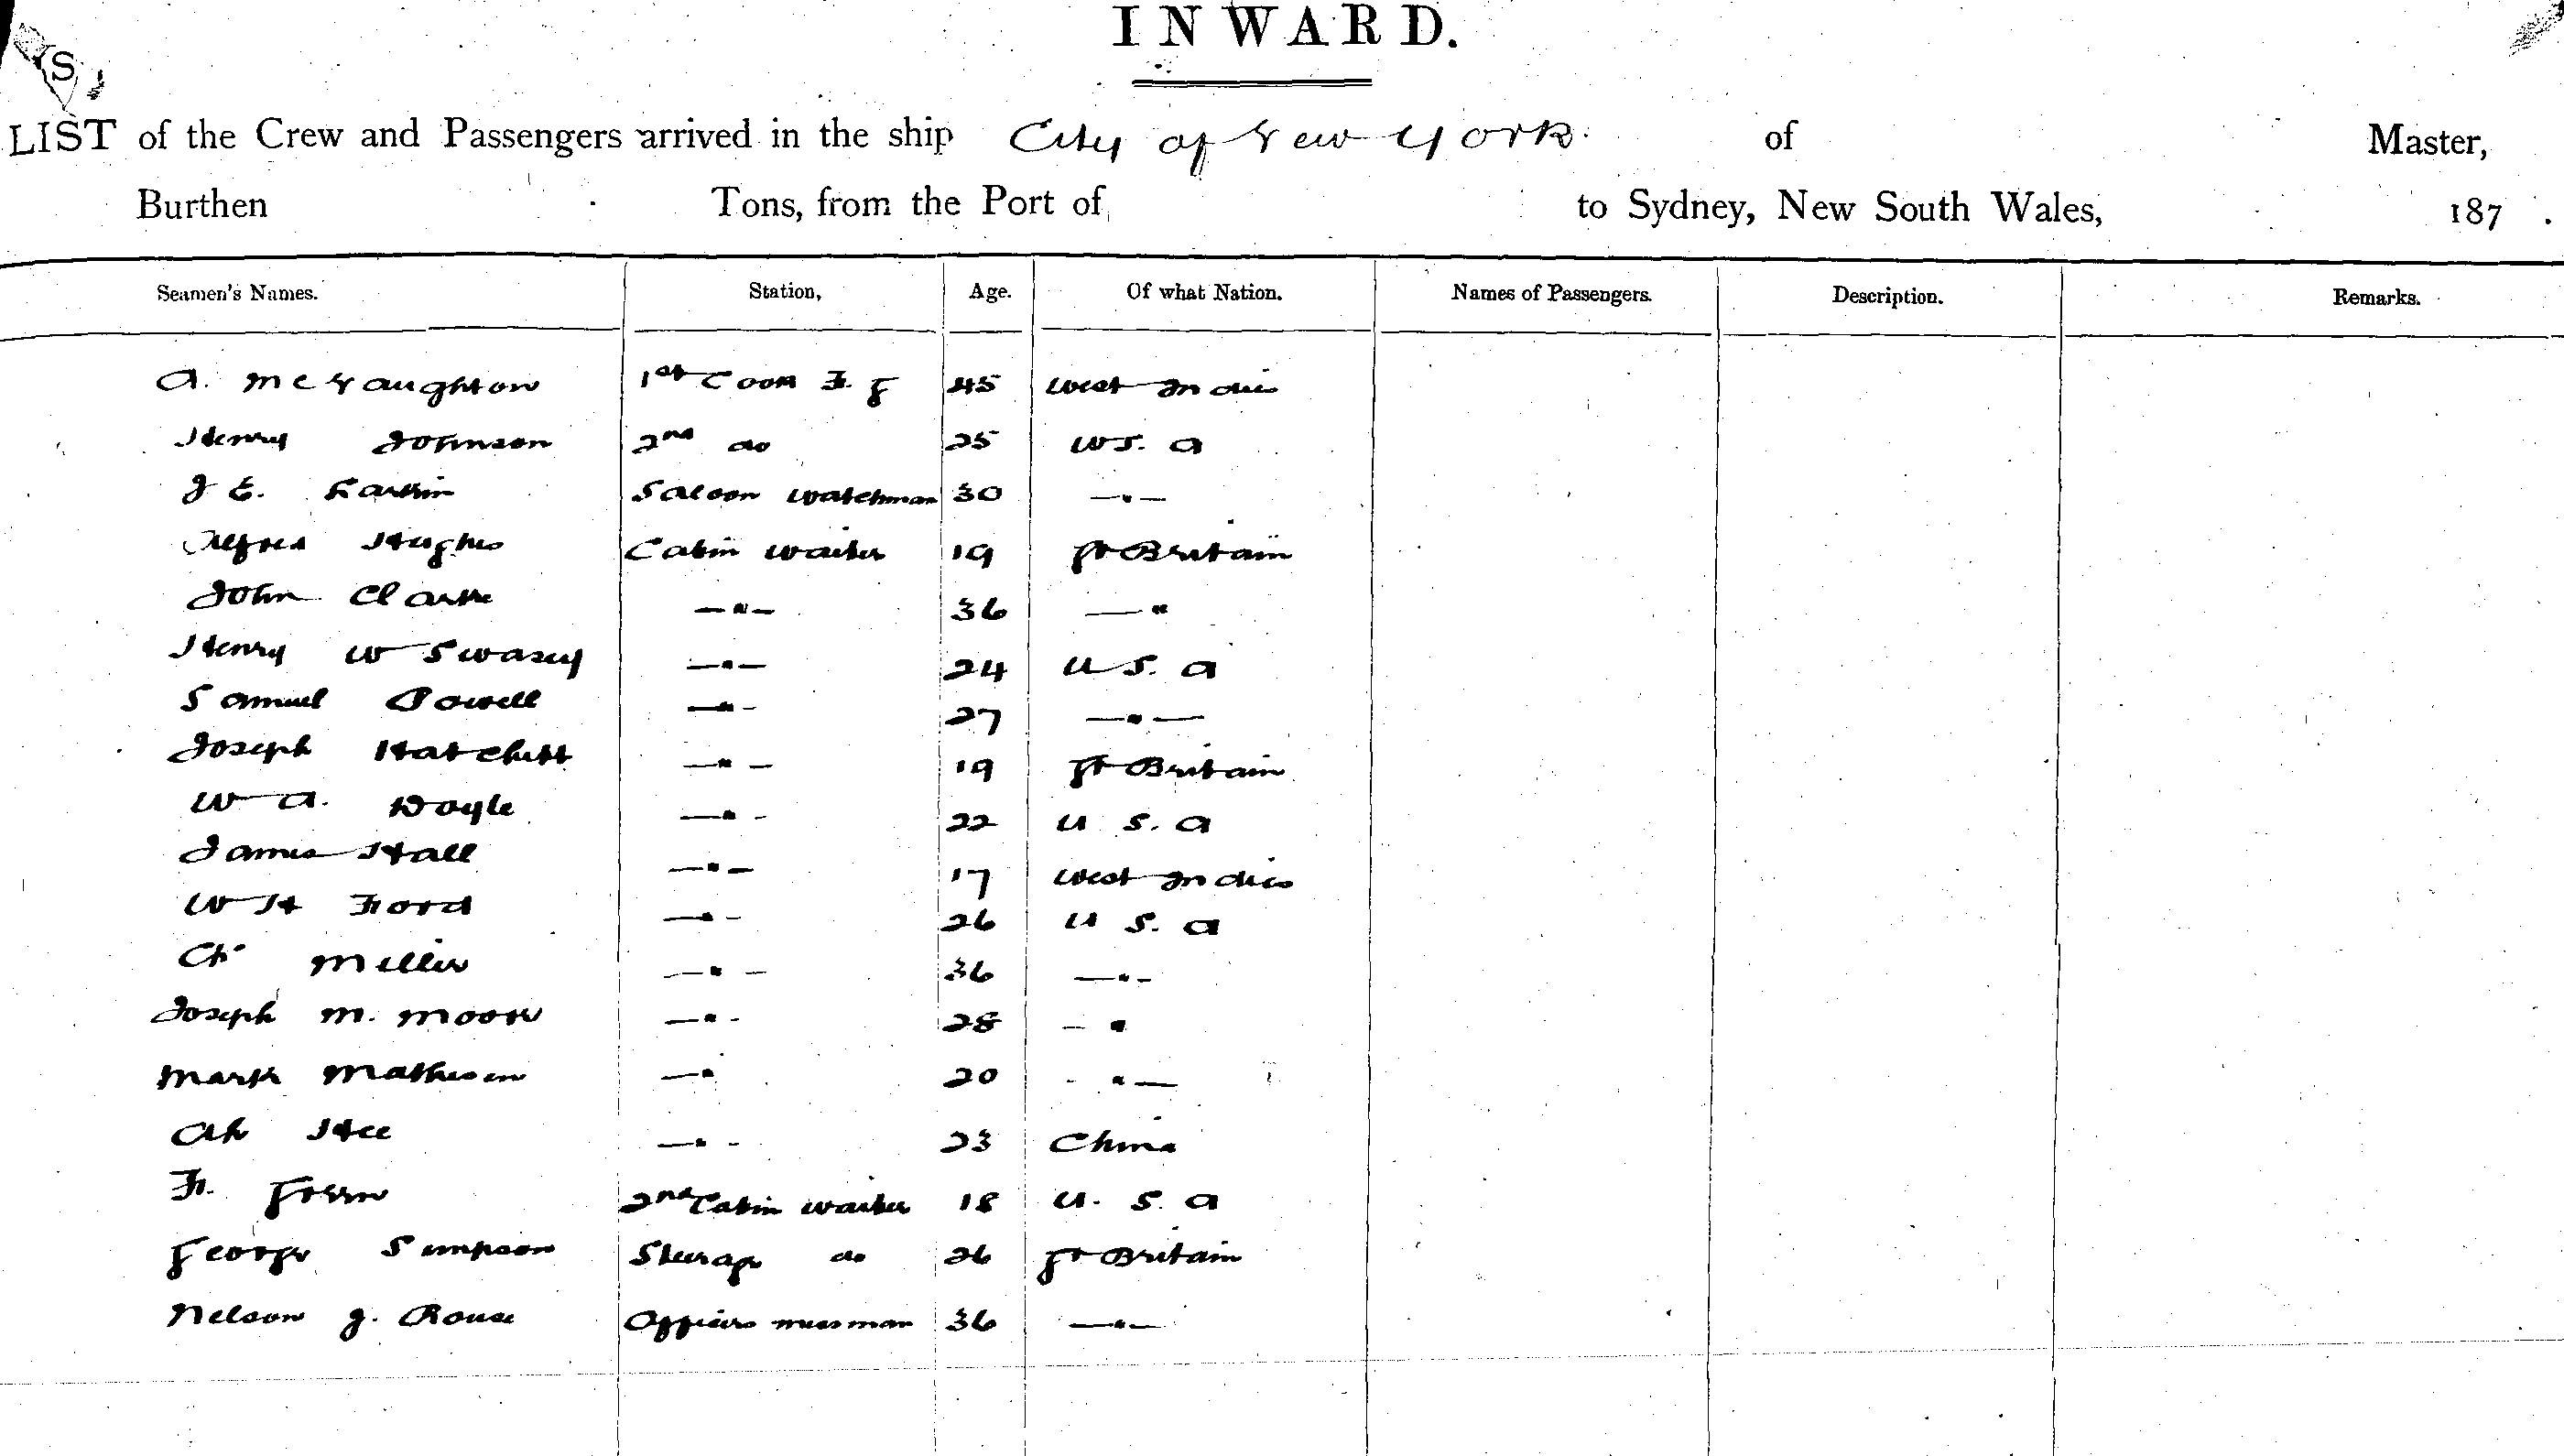 INWARD.
LIST of the Crew and Passengers arrived in the ship City of New York. of Master,
Burthen Tons, from the Port of to Sydney, New South Wales, 187 .
Seamen's Names. Station, Age. Of what Nation. Names of Passengers. Description. Remarks.
A. McNaughton 1st Cook F. G 45 West Indies
Henry Johnson 2nd do 25 U S. A
J E. Larkin Saloon Watchman 30 —"—
Alfred Hughes Cabin Waiter 19 Gt Britain
John Clarke —"— 36 —"
Henry W Swasey —"— 24 U S. A
Samuel Powell —"— 27 —"—
Joseph Hatchitt —"— 19 Gt Britain
W A. Doyle —"— 22 U S. A
James Hall —"— 17 West Indies
W H Ford —"— 26 U S. A
Ch. Miller —"— 36 —"—
Joseph M. Moore —"— 28 — "
Mark Mathesen —" 20 - "—
Ah Hee —"— 23 China
F. Green 2nd Cabin Waiter 18 U. S. A
George Simpson Steerage do 26 Gt Britain
Nelson J. Rouse Officers messman 36 —"—